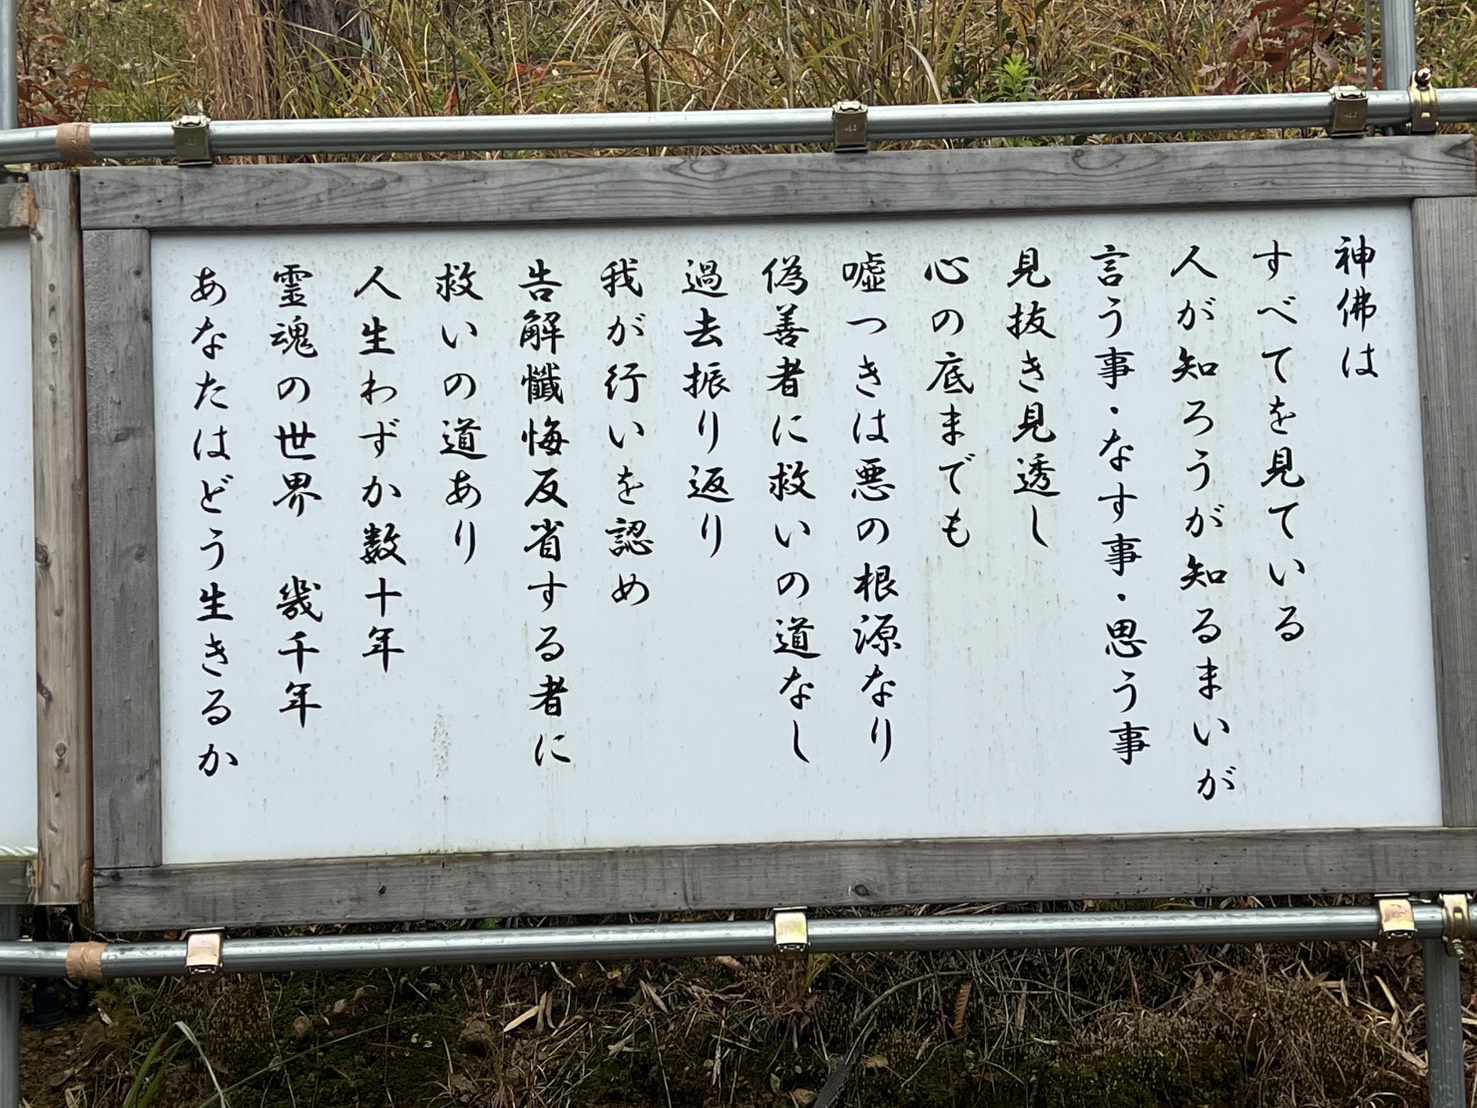 神佛は
すべてを見ている
人が知ろうが知るまいが
言う事・なす事・思う事
見抜き見透し
心の底までも
嘘つきは悪の根源なり
偽善者に救いの道なし
過去振り返り
我が行いを認め
告解懺悔反省する者に
救いの道あり
人生わずか数十年
霊魂の世界　幾千年
あなたはどう生きるか